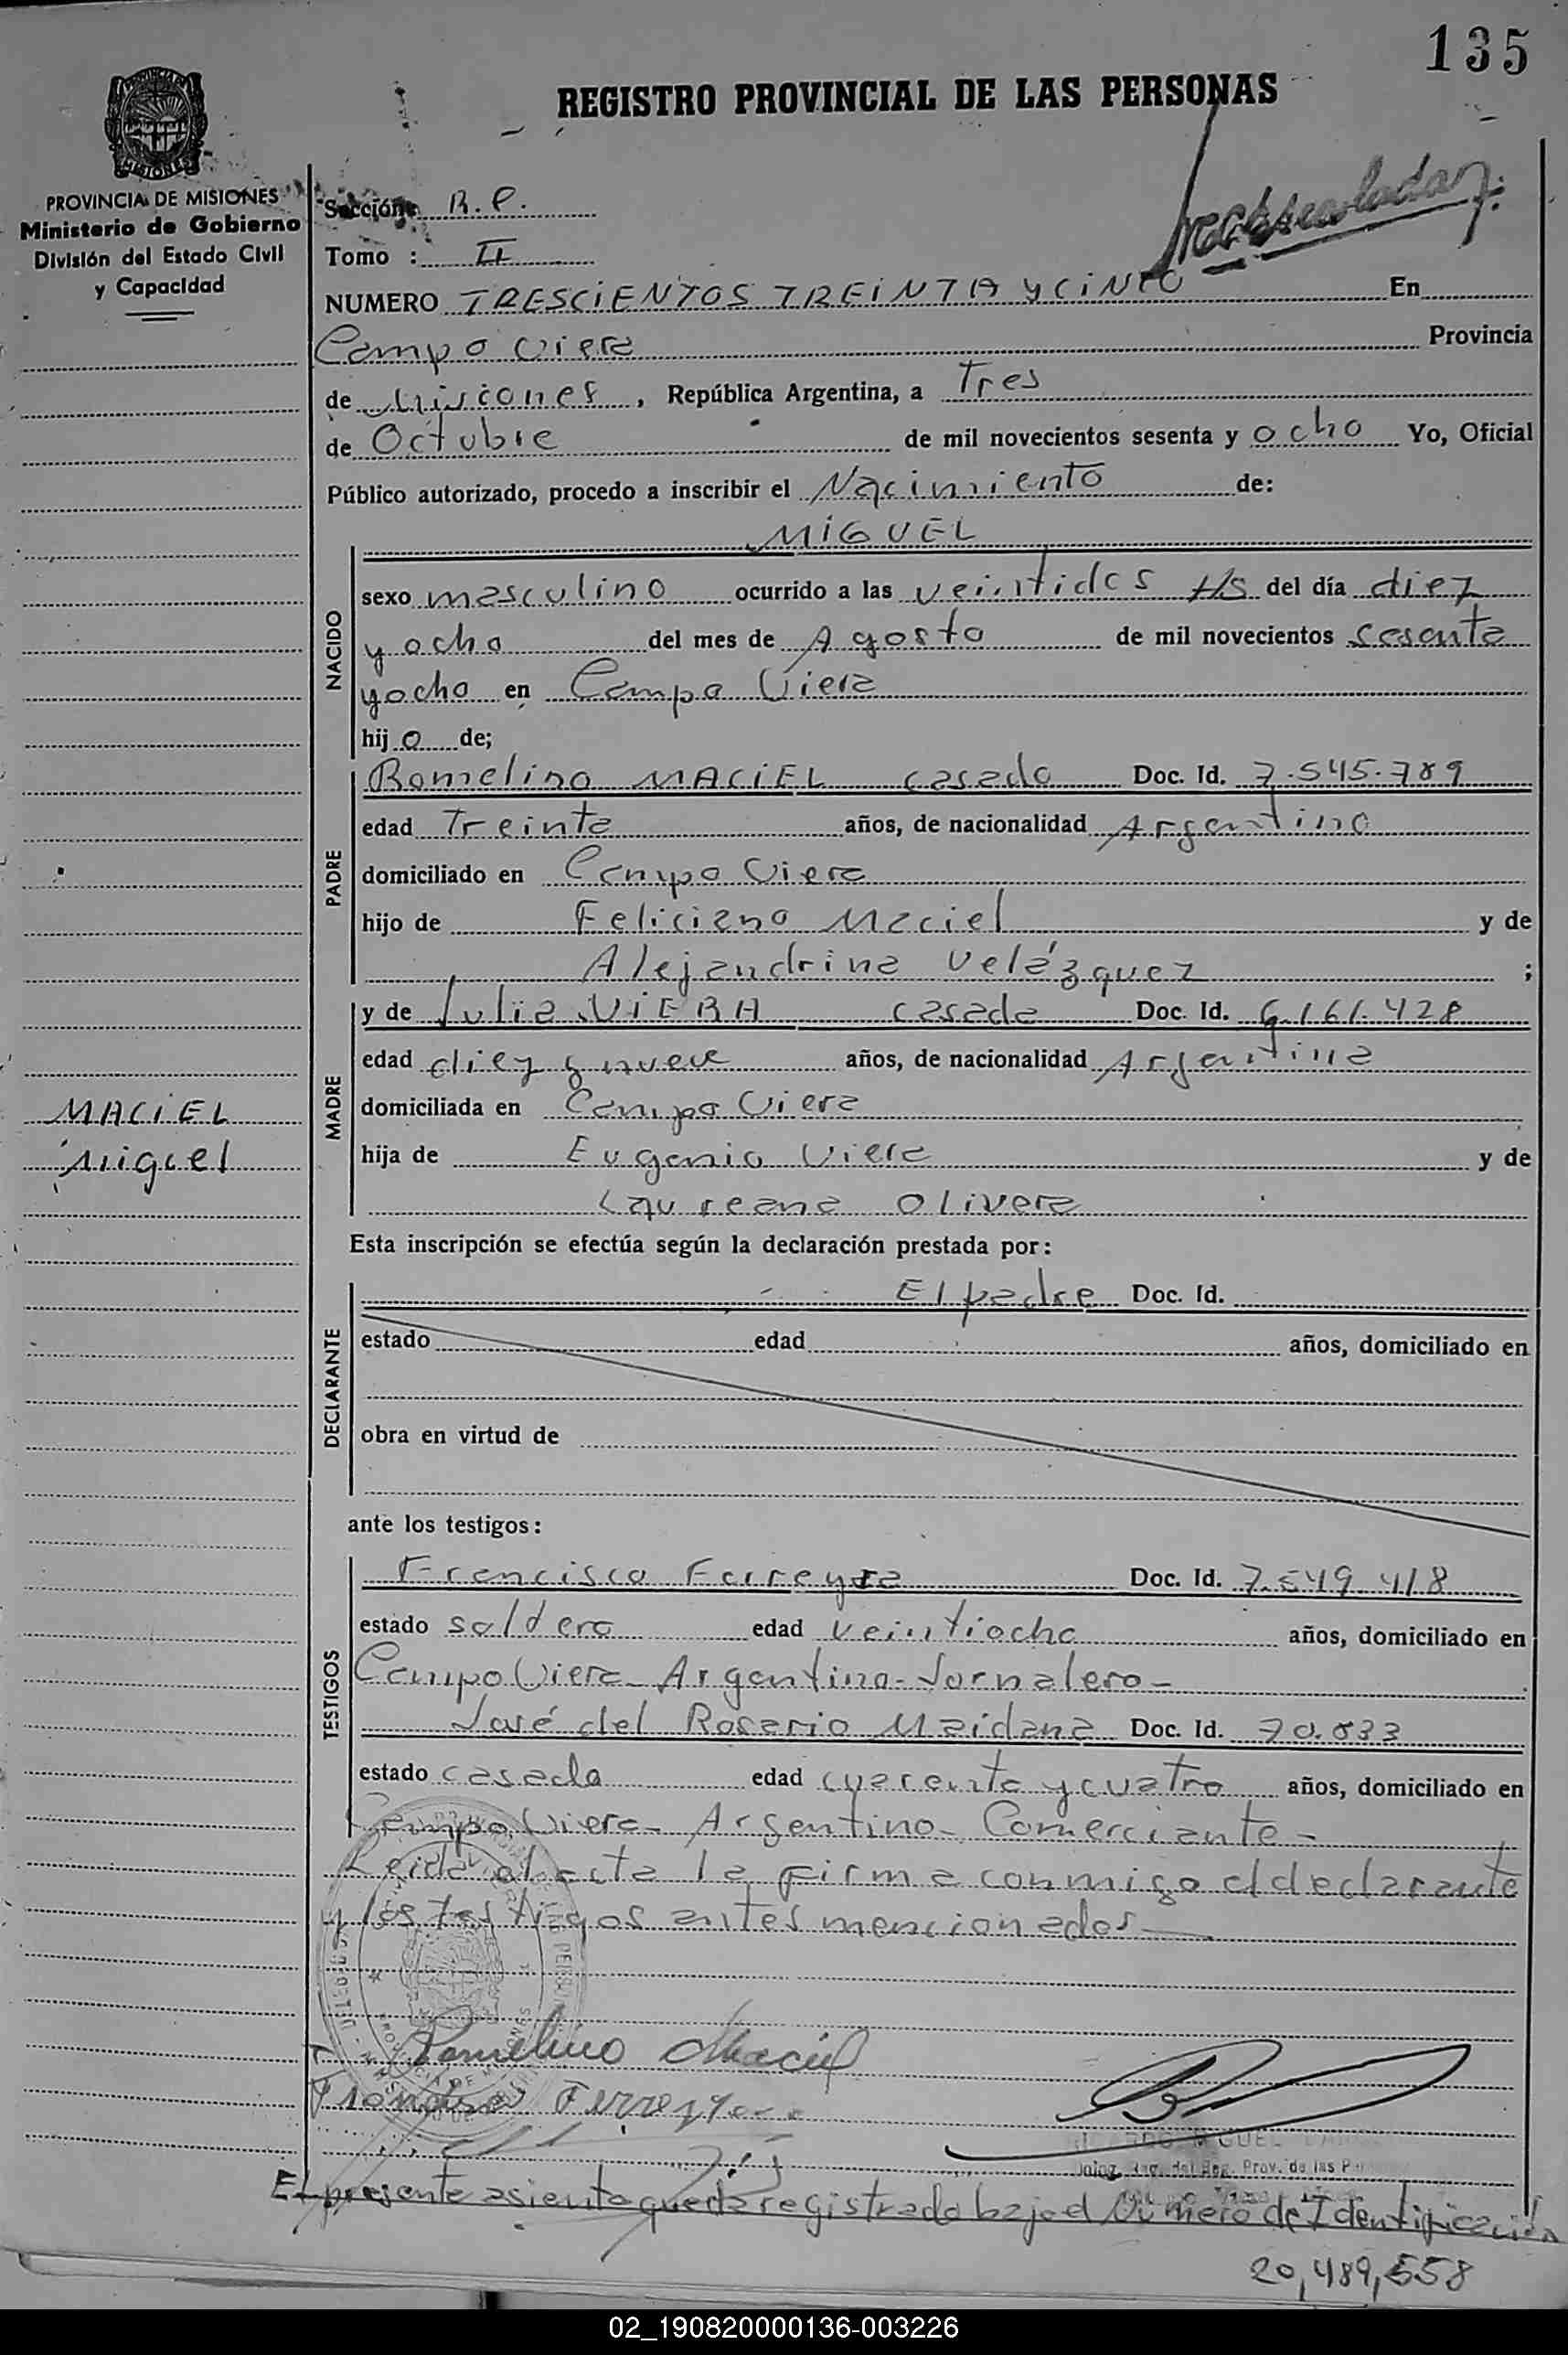 135
REGISTRO PROVINCIAL DE LAS PERSONAS
MISIONES
PROVINCIA DE MISIONES
Ministerio de Gobierno
División del Estado Civil
y Capacidad
Sección
Tomo : II
NUMERO TRESCIENTOS TREINTA y CiNCO En
Campo Viera Provincia
de Misiones, República Argentina, a Tres
de Octubre de mil novecientos sesenta y ocho Yo, Oficial
Público autorizado, procedo a inscribir el Nacimiento de:
MiGUEL
NACIDO
sexo masculino ocurrido a las veintidos Hs del día diez
y ocho del mes de Agosto de mil novecientos sesenta
y ocho en Campo Viera
hijo de;
PADRE
Romelino MACiEL casado Doc. Id. 7.545.789
edad Treinta años, de nacionalidad Argentino
domiciliado en Campo Viera
hijo de Feliciano Maciel y de
Alejandrina Velázquez ;
MADRE
y de Julia ViERA casada Doc. Id. 6.161.428
edad diez y nueve años, de nacionalidad Argentina
domiciliada en Campo Viera
MACiEL
Miguel
hija de Eugenio Viera y de
Laureana Olivera
Esta inscripción se efectúa según la declaración prestada por:
DECLARANTE
El padre Doc. Id.
estado edad años, domiciliado en
obra en virtud de
ante los testigos:
TESTIGOS
Francisco Ferreyra Doc. Id. 7.549.418
estado soltero edad veintiocho años, domiciliado en
Campo Viera - Argentino - Jornalero -
José del Rosario Maidana Doc. Id. 70.833
estado casado edad cuarenta y cuatro años, domiciliado en
Campo Viera - Argentino - Comerciante -
Leida el acta la firma conmigo el declarante
y los testigos antes mencionados
Romelino Maciel
Francisco Ferreyra
El presente asiento queda registrado bajo el Número de Identificación
20,489,558
02_190820000136-003226